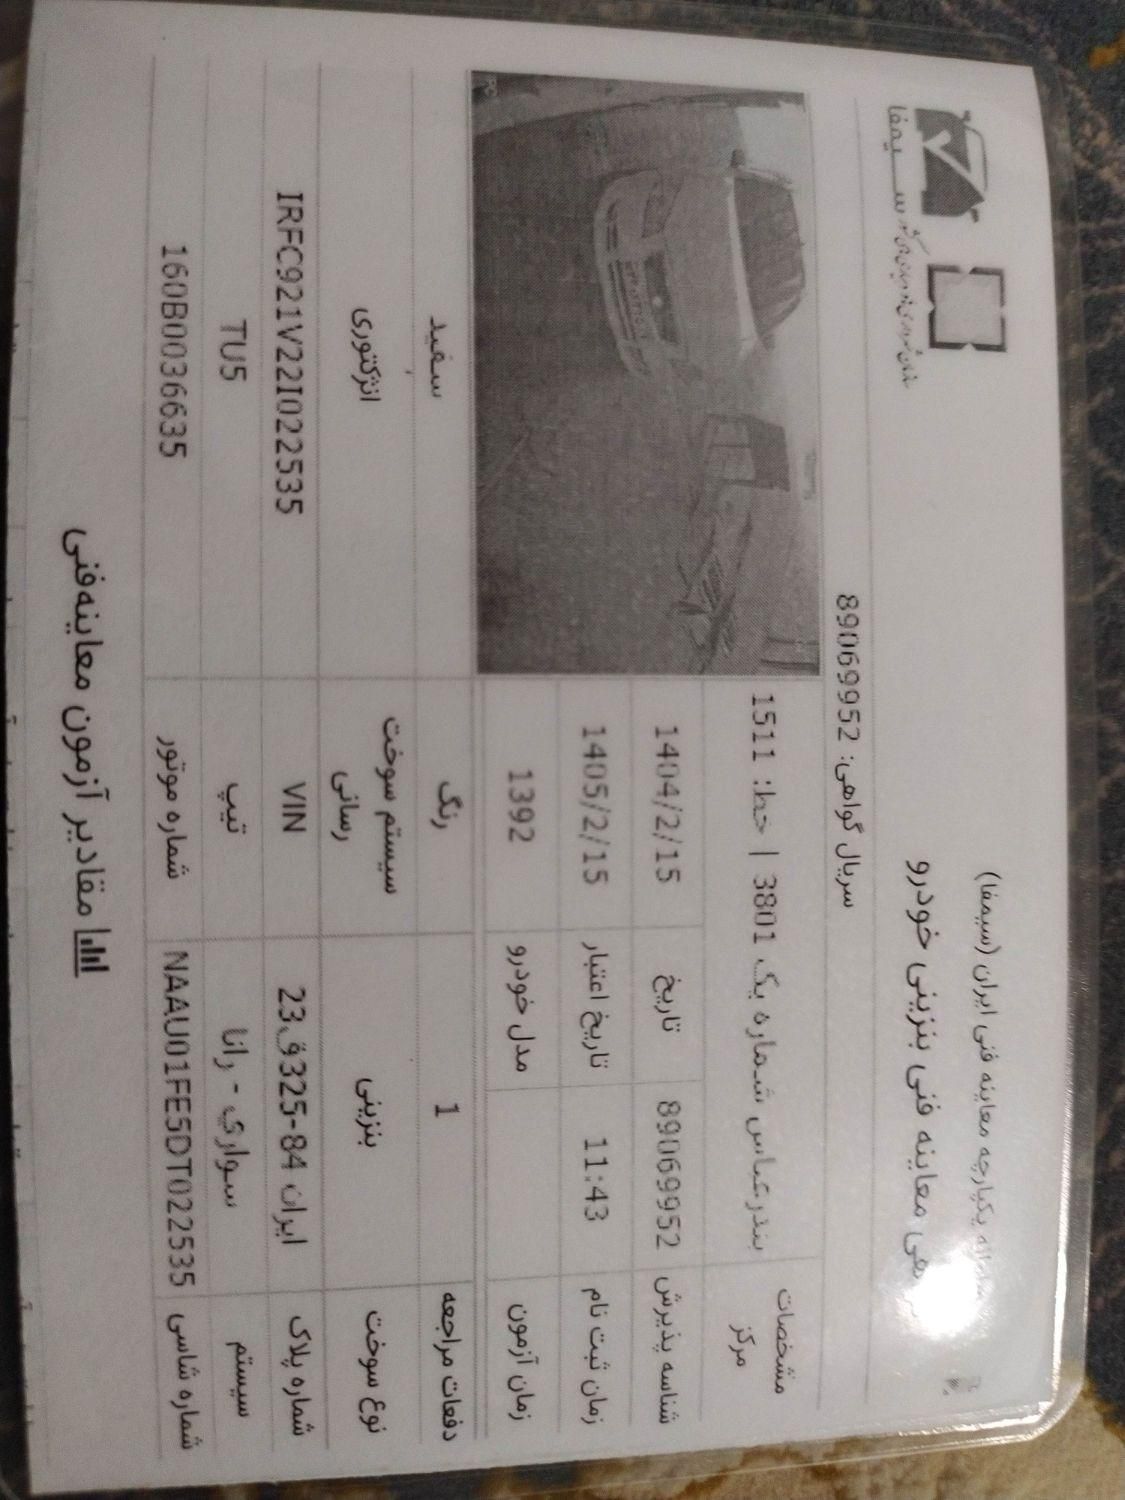 سامانه یکپارچه معاینه فنی ایران (سیمفا)
معاینه فنی بنزینی خودرو
سیمفا
سریال گواهی: 89069952
مشخصات مرکز بندرعباس شماره یک 3801 | خط: 1511
شناسه پذیرش 89069952 تاریخ 1404/2/15
زمان ثبت نام 11:43 تاریخ اعتبار 1405/2/15
زمان آزمون مدل خودرو 1392
دفعات مراجعه 1 رنگ سفید
نوع سوخت بنزینی سیستم سوخت رسانی انژکتوری
شماره پلاک ایران 84-325ق23 VIN IRFC921V22I022535
سیستم سواري - رانا تیپ TU5
شماره شاسی NAAU01FE5DT022535 شماره موتور 160B0036635
مقادیر آزمون معاینه‌فنی